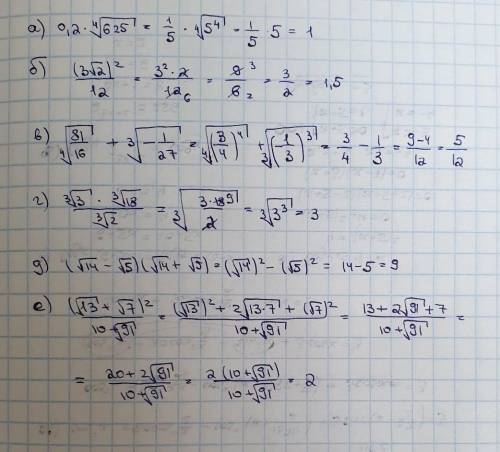 а) 0,2 · ∜625 = 1/5 · ∜5⁴ = 1/5 · 5 = 1
б) (3√2)²/12 = 3² · 2/12 6 = 9 3/6 2 = 3/2 = 1,5
в) ∜(81/16) + ∛(-1/27) = ∜(3/4)⁴ + ∛(1/3)³ = 3/4 - 1/3 = 9-4/12 = 5/12
г) ∛3 · ∛18/∛2 = ∛(3·18 9/2) = ∛3³ = 3
д) (√14 - √5)(√14 + √5) = (√14)² - (√5)² = 14-5 = 9
е) (√13 + √7)²/10+√91 = (√13)² + 2√13·7 + (√7)²/10+√91 = 13 + 2√91 + 7/10+√91 =
= 20 + 2√91/10+√91 = 2(10+√91)/10+√91 = 2